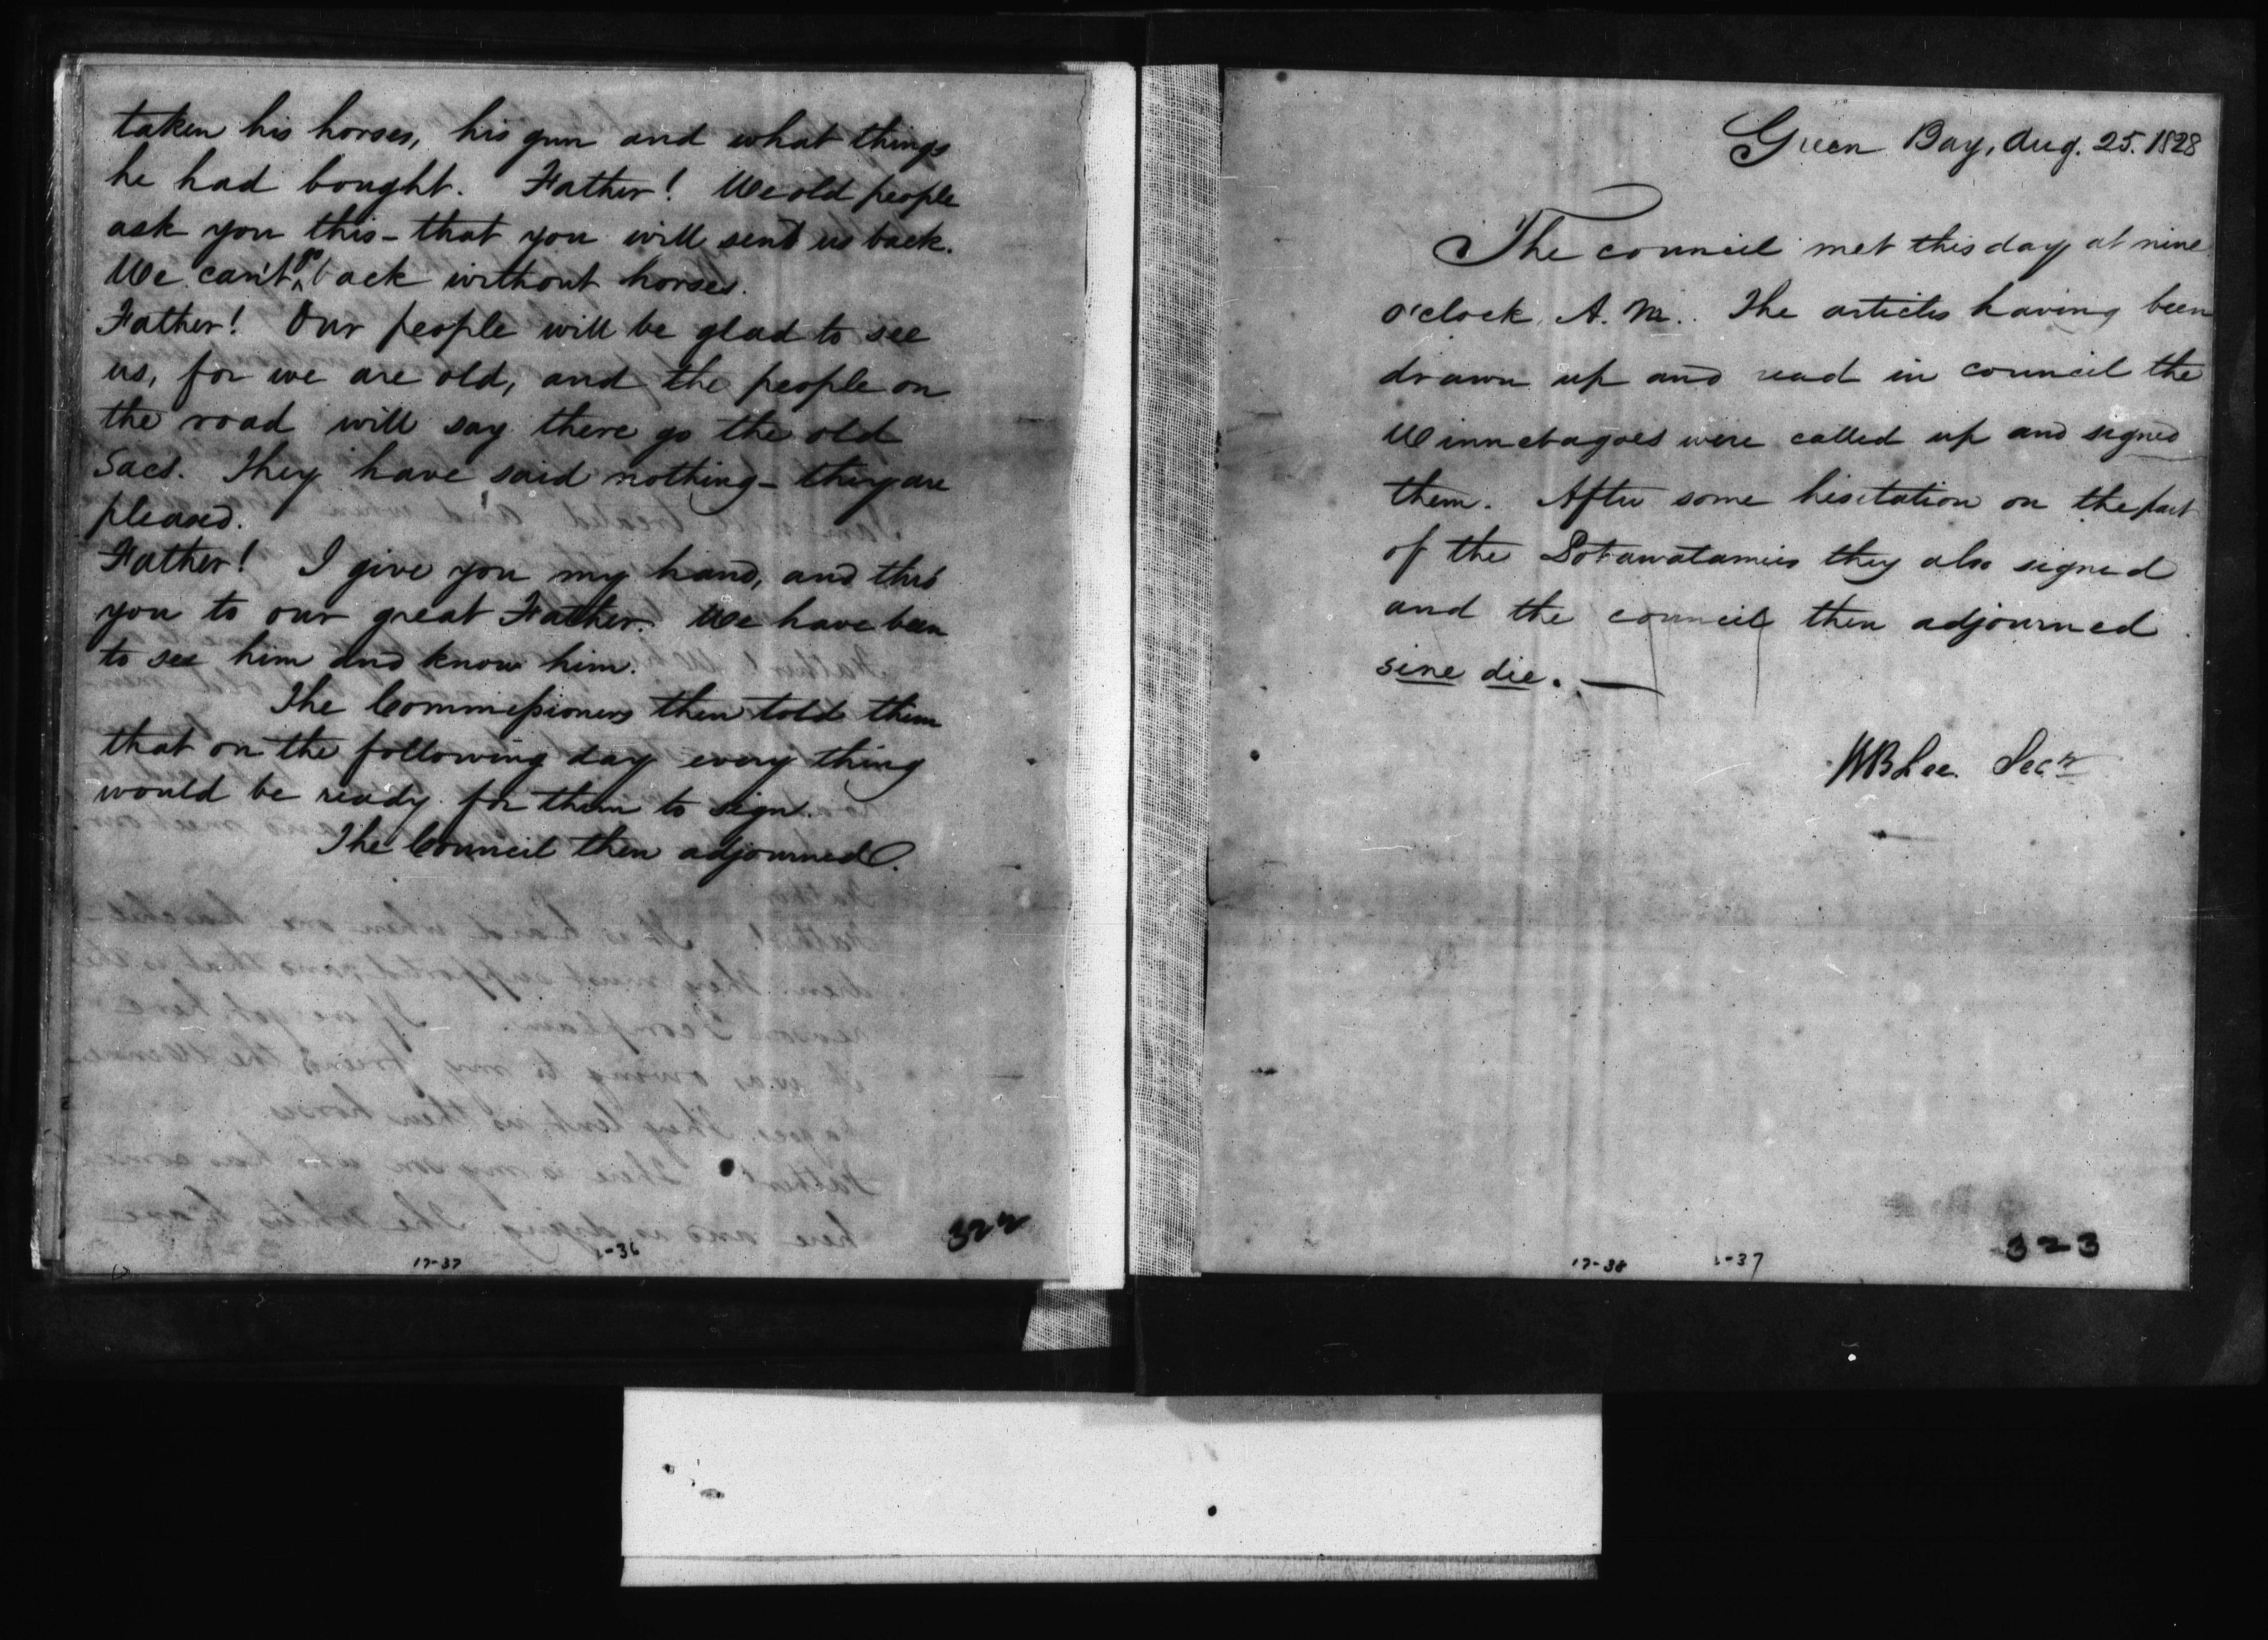 taken his horses, his gun and what things
he had bought. Father! We old people
ask you this - that you will send us back.
We can't go back without horses.
Father! Our people will be glad to see
us, for we are old, and the people on
the road will say there go the old
Sacs. They have said nothing - they are
pleased.
Father! I give you my hand, and thro'
you to our great Father. We have been
to see him and know him.
The Commissioners then told them
that on the following day every thing
would be ready for them to sign.
The Council then adjourned.
322
17-37
-36
Green Bay, Aug. 25. 1828
The council met this day at nine
o'clock, A. M. The articles having been
drawn up and read in council the
Winnebagoes were called up and signed
them. After some hesitation on the part
of the Potawatamies they also signed
and the council then adjourned
sine die. —
WB Lee. Secry
323
17-38
-37